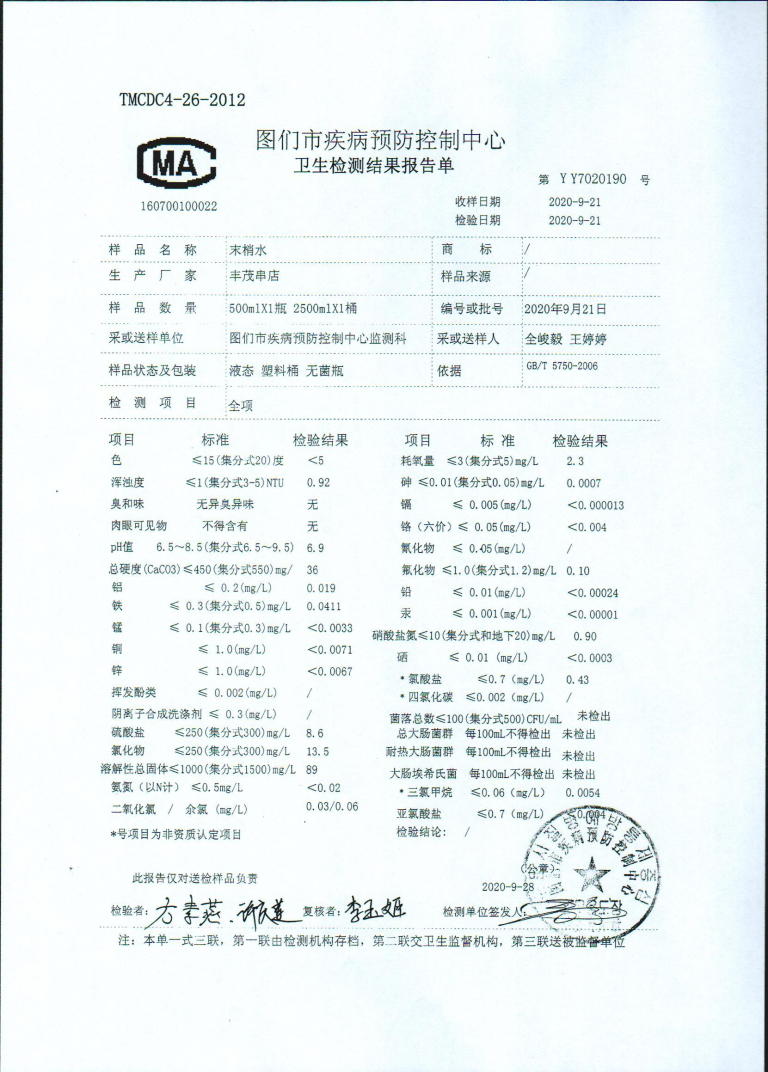 TMCDC4-26-2012
图们市疾病预防控制中心
MA
卫生检测结果报告单
第 YY7020190 号
160700100022
收样日期 2020-9-21
检验日期 2020-9-21
样品名称 末梢水 商标 /
生产厂家 丰茂串店 样品来源 /
样品数量 500mlX1瓶 2500mlX1桶 编号或批号 2020年9月21日
采或送样单位 图们市疾病预防控制中心监测科 采或送样人 全峻毅 王婷婷
样品状态及包装 液态 塑料桶 无菌瓶 依据 GB/T 5750-2006
检测项目 全项
项目 标准 检验结果 项目 标准 检验结果
色 ≤15(集分式20)度 <5 耗氧量 ≤3(集分式5)mg/L 2.3
浑浊度 ≤1(集分式3-5)NTU 0.92 砷 ≤0.01(集分式0.05)mg/L 0.0007
臭和味 无异臭异味 无 镉 ≤ 0.005(mg/L) <0.000013
肉眼可见物 不得含有 无 铬（六价）≤ 0.05(mg/L) <0.004
pH值 6.5～8.5(集分式6.5～9.5) 6.9 氰化物 ≤ 0.05(mg/L) /
总硬度(CaCO3)≤450(集分式550)mg/ 36 氟化物 ≤1.0(集分式1.2)mg/L 0.10
铝 ≤ 0.2(mg/L) 0.019 铅 ≤ 0.01(mg/L) <0.00024
铁 ≤ 0.3(集分式0.5)mg/L 0.0411 汞 ≤ 0.001(mg/L) <0.00001
锰 ≤ 0.1(集分式0.3)mg/L <0.0033 硝酸盐氮≤10(集分式和地下20)mg/L 0.90
铜 ≤ 1.0(mg/L) <0.0071 硒 ≤ 0.01 (mg/L) <0.0003
锌 ≤ 1.0(mg/L) <0.0067 *氯酸盐 ≤0.7（mg/L) 0.43
挥发酚类 ≤ 0.002(mg/L) / *四氯化碳 ≤0.002（mg/L) /
阴离子合成洗涤剂 ≤ 0.3(mg/L) / 菌落总数≤100(集分式500)CFU/mL 未检出
硫酸盐 ≤250(集分式300)mg/L 8.6 总大肠菌群 每100mL不得检出 未检出
氯化物 ≤250(集分式300)mg/L 13.5 耐热大肠菌群 每100mL不得检出 未检出
溶解性总固体≤1000(集分式1500)mg/L 89 大肠埃希氏菌 每100mL不得检出 未检出
氨氮（以N计） ≤0.5mg/L <0.02 *三氯甲烷 ≤0.06（mg/L) 0.0054
二氧化氯 / 余氯 (mg/L) 0.03/0.06 亚氯酸盐 ≤0.7（mg/L) <0.004
*号项目为非资质认定项目 检验结论: /
图们市疾病预防控制中心
此报告仅对送检样品负责 （公章）
2020-9-28
检验者: 复核者:李玉姬 检测单位签发人:
注：本单一式三联，第一联由检测机构存档，第二联交卫生监督机构，第三联送被监督单位